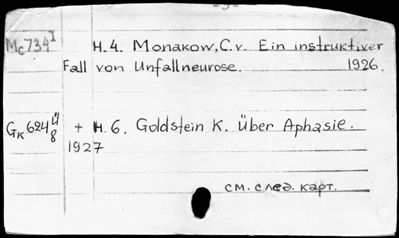 Mc734I H.4. Monakow, C.v. Ein instruktiver
Fall von Unfallneurose. 1926.
Gк624 8 + H.6. Goldstein K. Über Aphasie.
1927
см. след. карт.